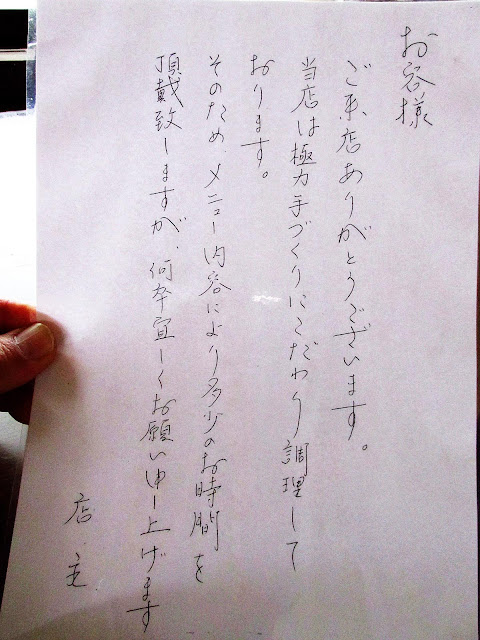 お客様
ご来店ありがとうございます。
当店は極力手づくりにこだわり調理して
おります。
そのため、メニュー内容により多少のお時間を
頂戴致しますが、何卒宜しくお願い申し上げます
店主